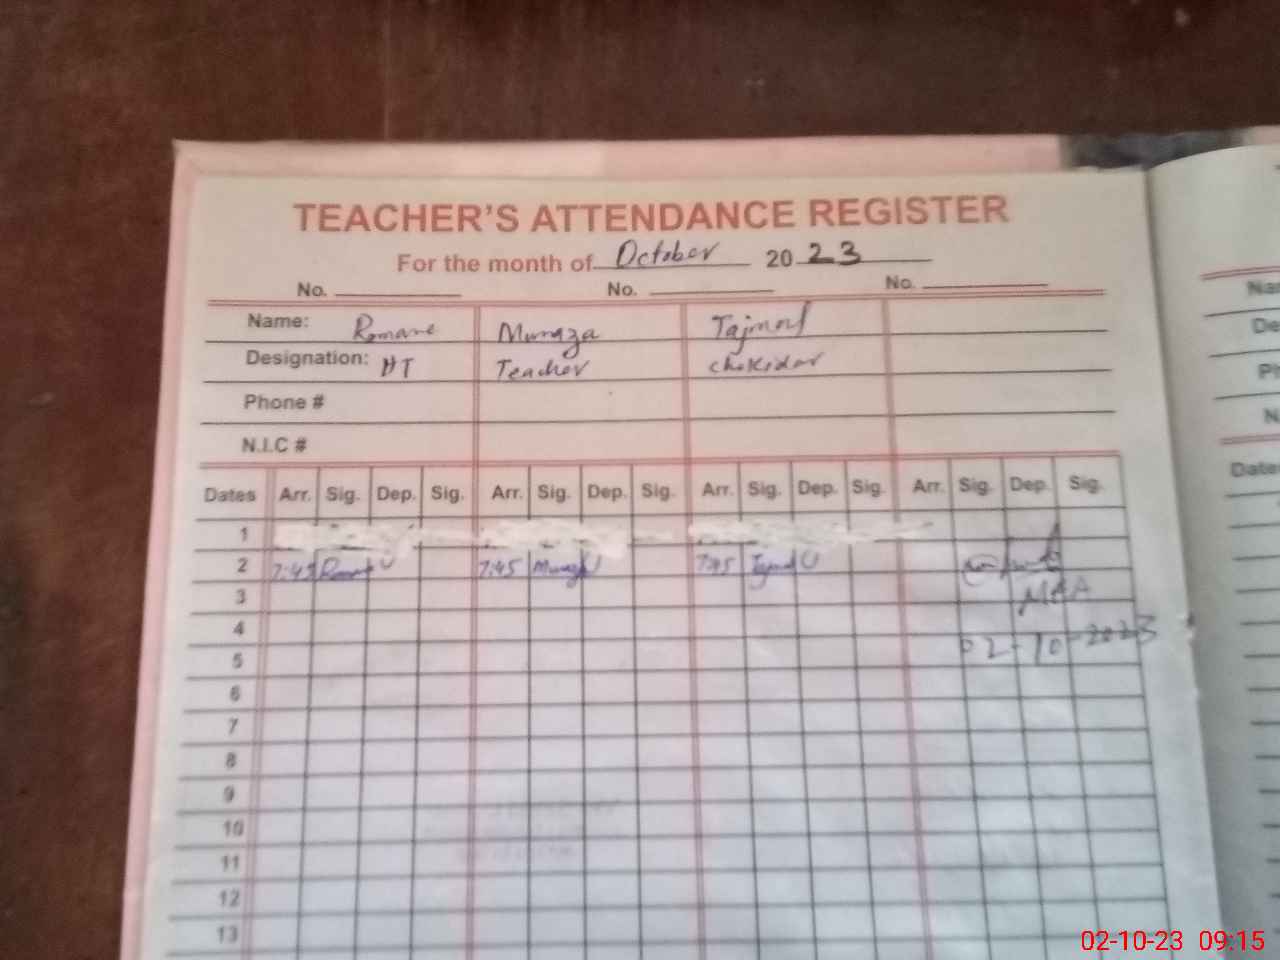 TEACHER'S ATTENDANCE REGISTER
For the month of October 2023
No. No. No.
Name: Romane Munaza
Designation: HT Teacher chokidar
Phone #
N.I.C #
Dates Arr. Sig. Dep. Sig. Arr. Sig. Dep. Sig. Arr. Sig. Dep. Sig. Arr. Sig. Dep. Sig.
1
2 7:45 Romane 7:45 Munaza 7:45
3 MEA
4
02-10-2023
5
6
7
8
9
10
11
12
13
Dates
02-10-23 09:15